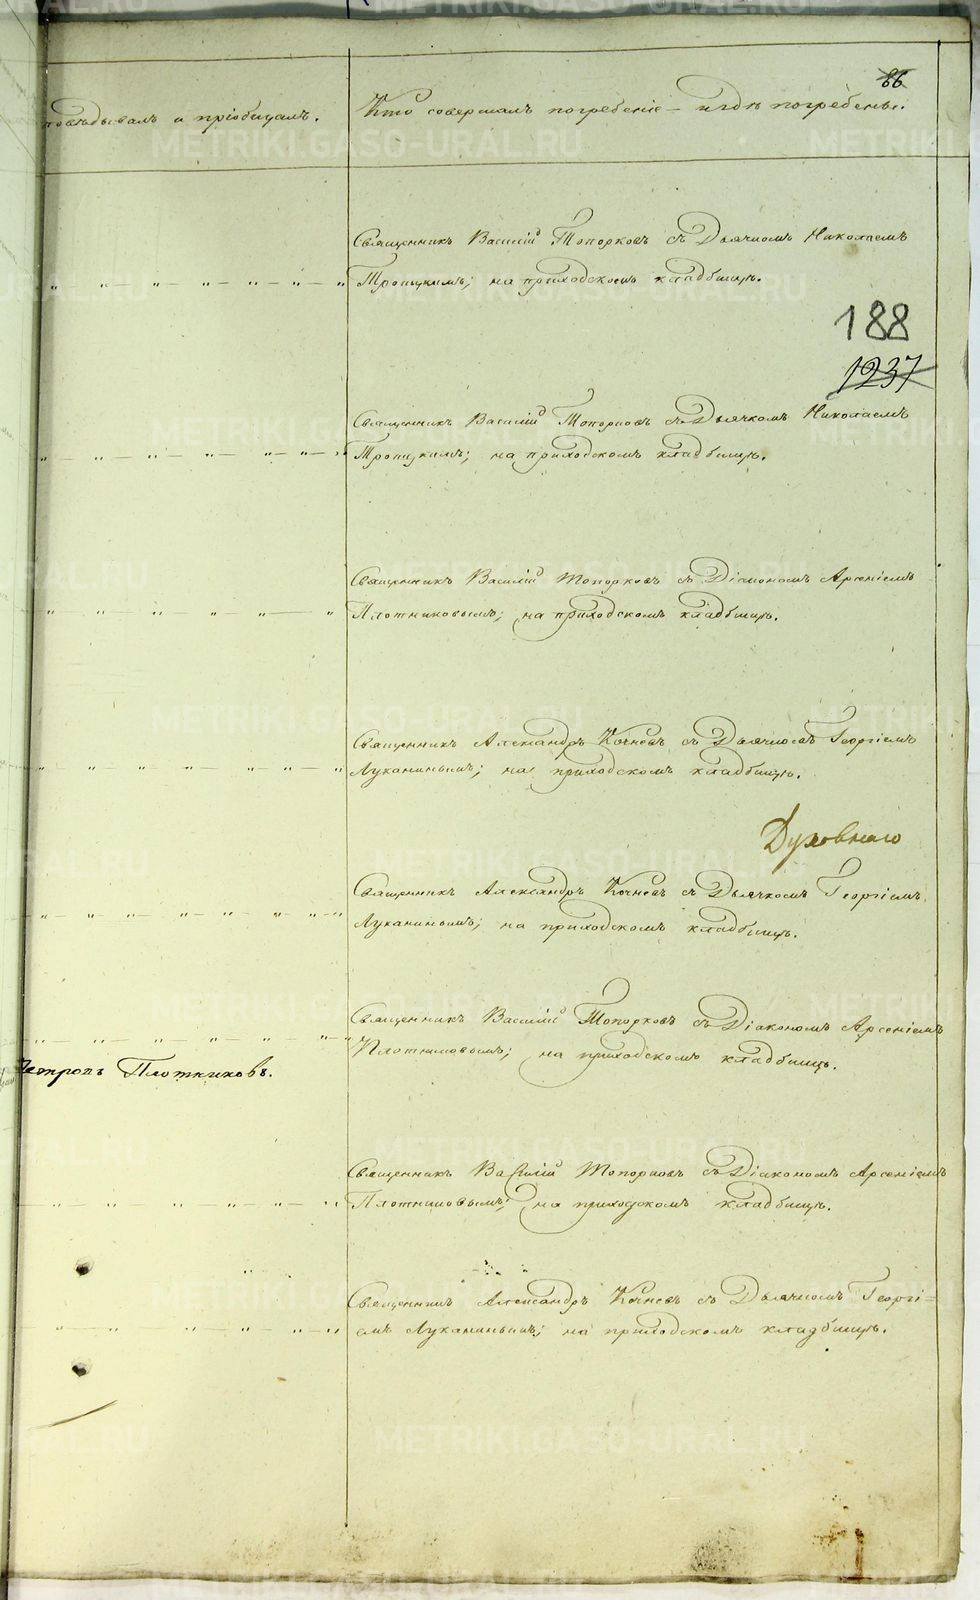 66
повѣдывалъ и пріобщалъ.
Кто совершалъ погребеніе и гдѣ погребены.
Священникъ Василій Топорковъ съ Дьячкомъ Николаемъ
Троицкимъ; на приходскомъ кладбищѣ.
188
1237
Священникъ Василій Топорковъ съ Дьячкомъ Николаемъ
Троицкимъ; на приходскомъ кладбищѣ.
Священникъ Василій Топорковъ съ Діакономъ Арсеніемъ
Плотниковымъ; на приходскомъ кладбищѣ.
Священникъ Александръ Кочневъ съ Дьячкомъ Георгіемъ
Луканинымъ; на приходскомъ кладбищѣ.
Духовнаго
Священникъ Александръ Кочневъ съ Дьячкомъ Георгіемъ
Луканинымъ; на приходскомъ кладбищѣ.
Священникъ Василій Топорковъ съ Діакономъ Арсеніемъ
Плотниковымъ; на приходскомъ кладбищѣ.
Плотниковъ.
Священникъ Василій Топорковъ съ Діакономъ Арсеніемъ
Плотниковымъ; на приходскомъ кладбищѣ.
Священникъ Александръ Кочневъ съ Дьячкомъ Георгі=
емъ Луканинымъ; на приходскомъ кладбищѣ.
METRIKI.GASO-URAL.RU